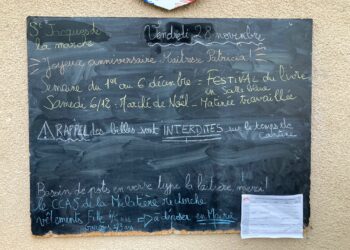 St Jacques de la marche
Vendredi 28 novembre
Joyeux anniversaire Maîtresse Patricia !
Semaine du 1er au 6 décembre : FESTIVAL du livre
en Salle
Samedi 6/12 : Marché de Noël - Matinée travaillée
⚠ RAPPEL des billes sont INTERDITES sur le temps de
cantine
Besoin de pots en verre type la laitière, merci !
Le CCAS de la Meletière recherche
vêtements Fille
→ à déposer en Mairie